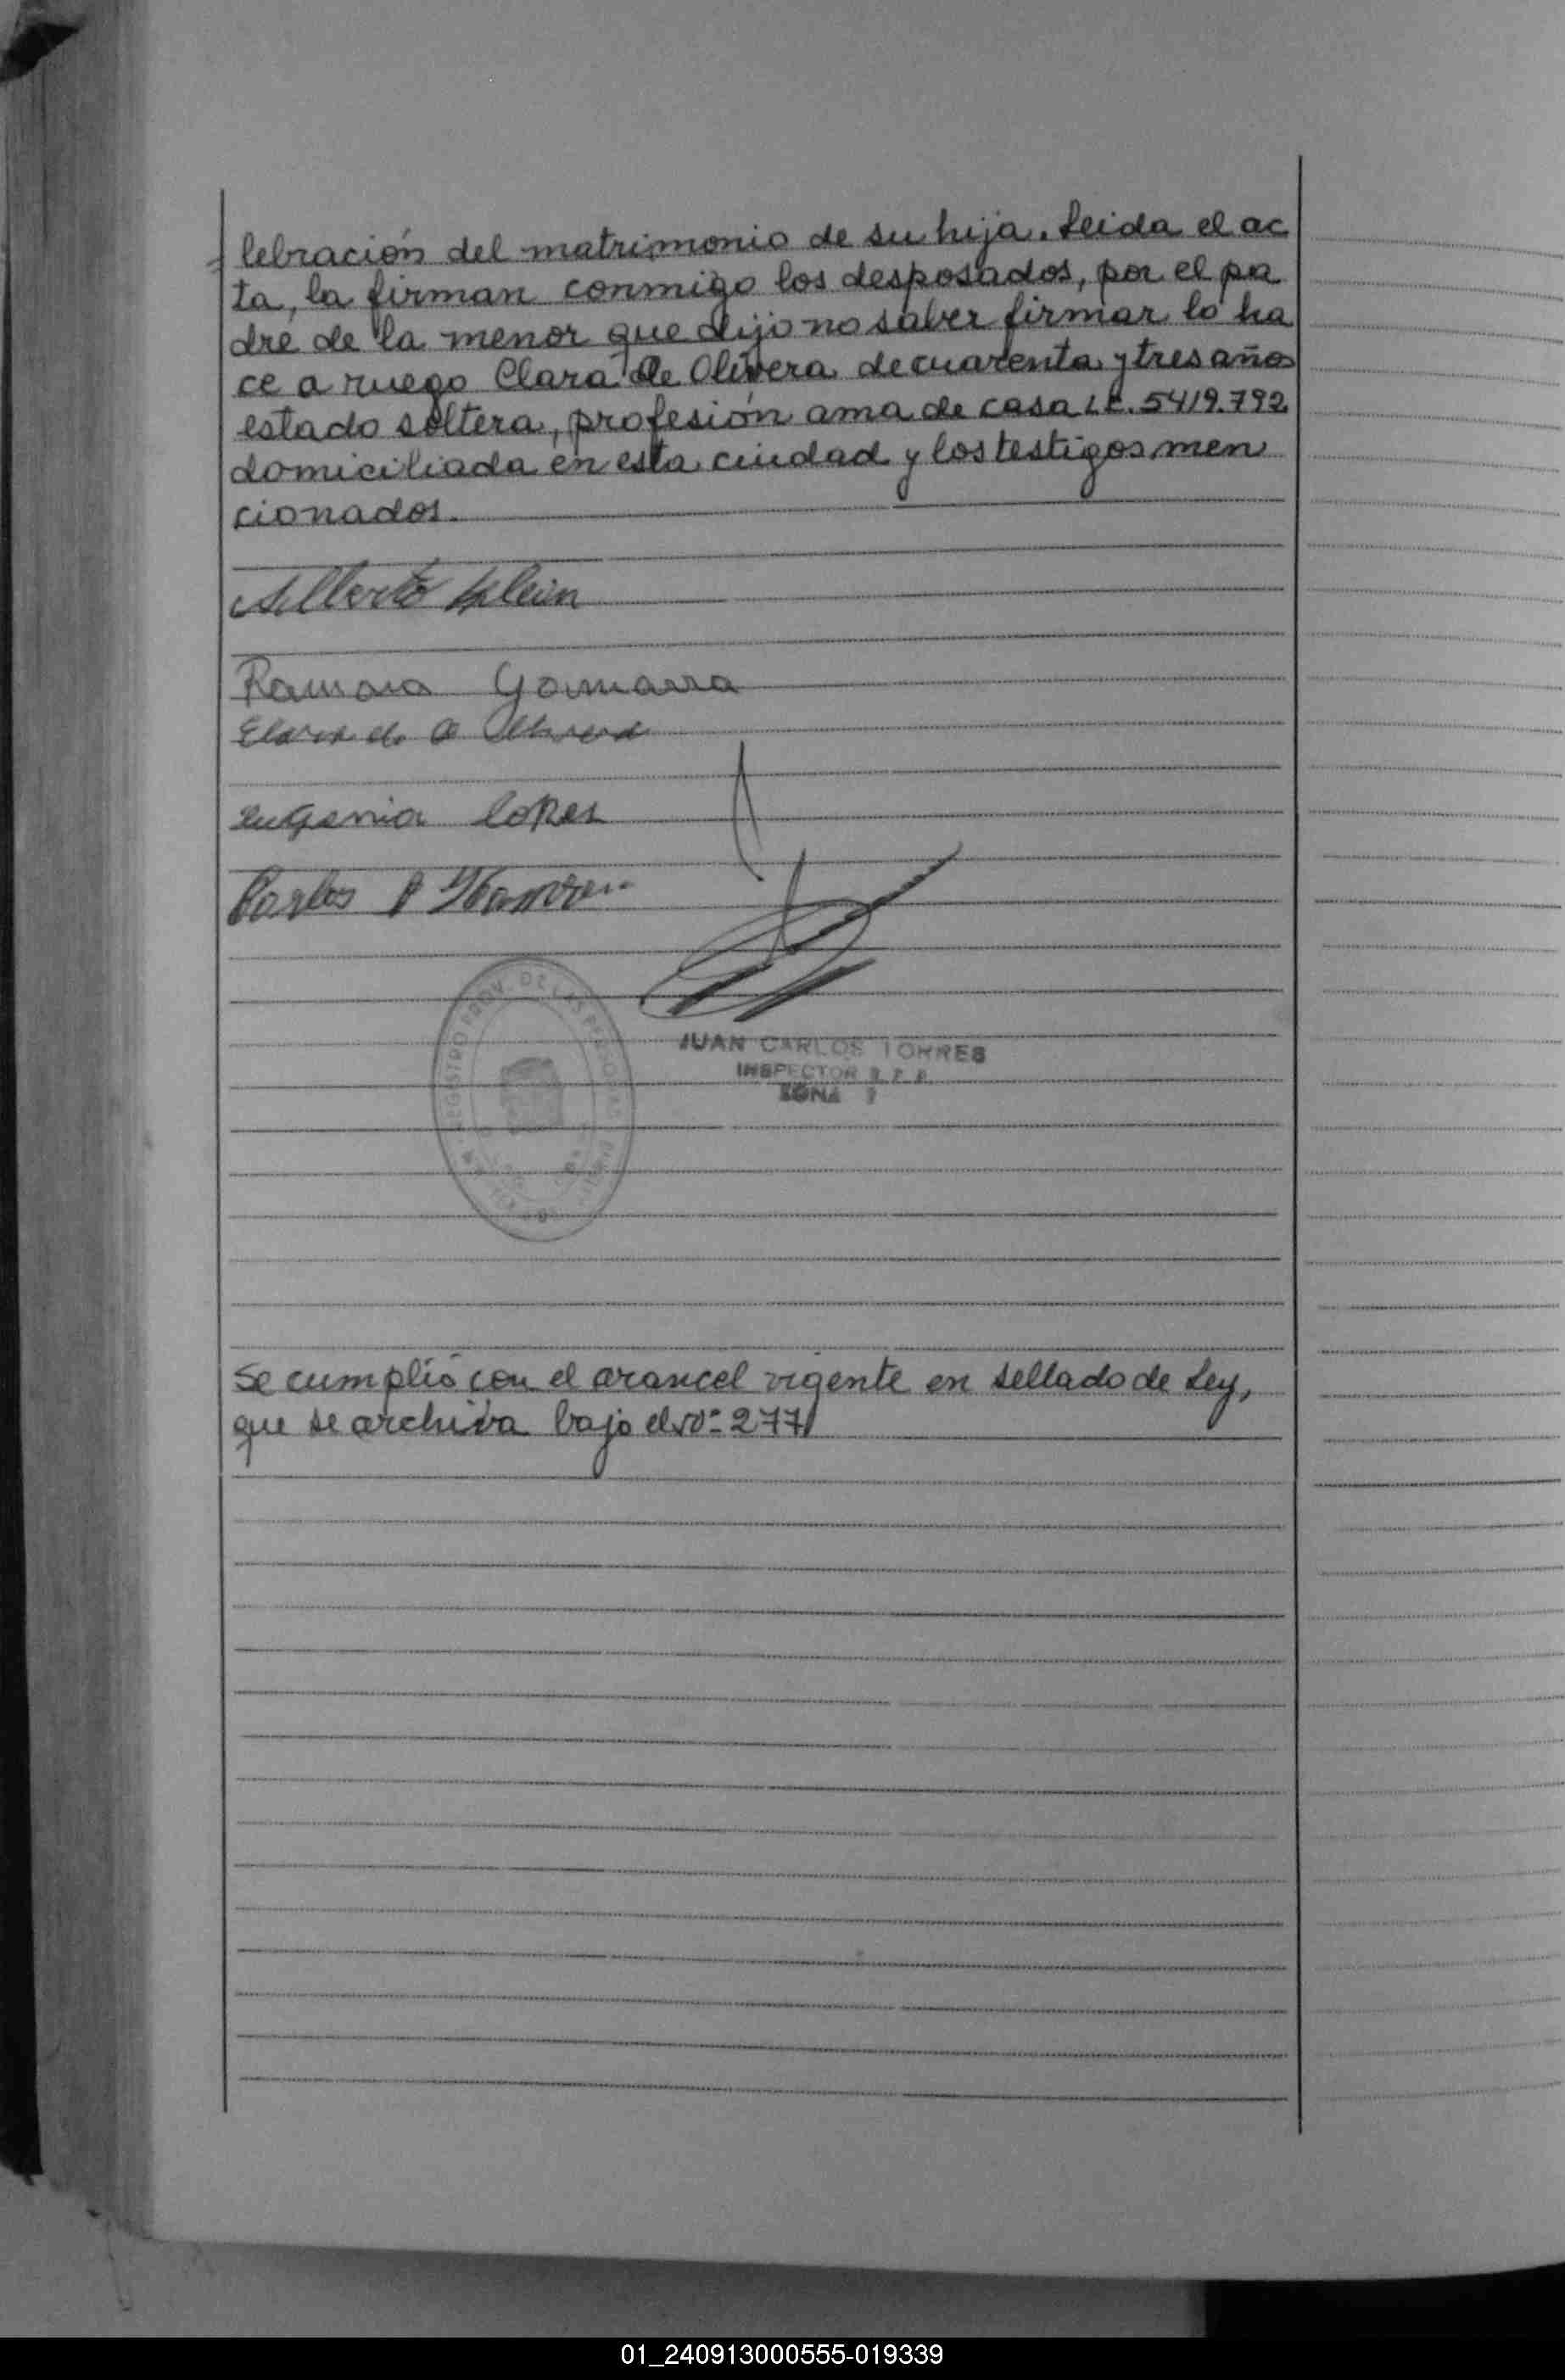 lebración del matrimonio de su hija. Leida el ac
ta, la firman conmigo los desposados, por el pa
dre de la menor que dijo no saber firmar lo ha
ce a ruego Clara de Olivera de cuarenta y tres años
estado soltera, profesión ama de casa L.C. 5419.792
domiciliada en esta ciudad y los testigos men
cionados.
Alberto Klein
Ramona Gamarra
Clara de Olivera
eugenia lopes
Carlos
REGISTRO PROV. DE LAS PERSONAS
JUAN CARLOS TORRES
INSPECTOR R.P.P.
ZONA
Se cumplió con el arancel vigente en sellado de Ley,
que se archiva bajo el Nº 277
01_240913000555-019339